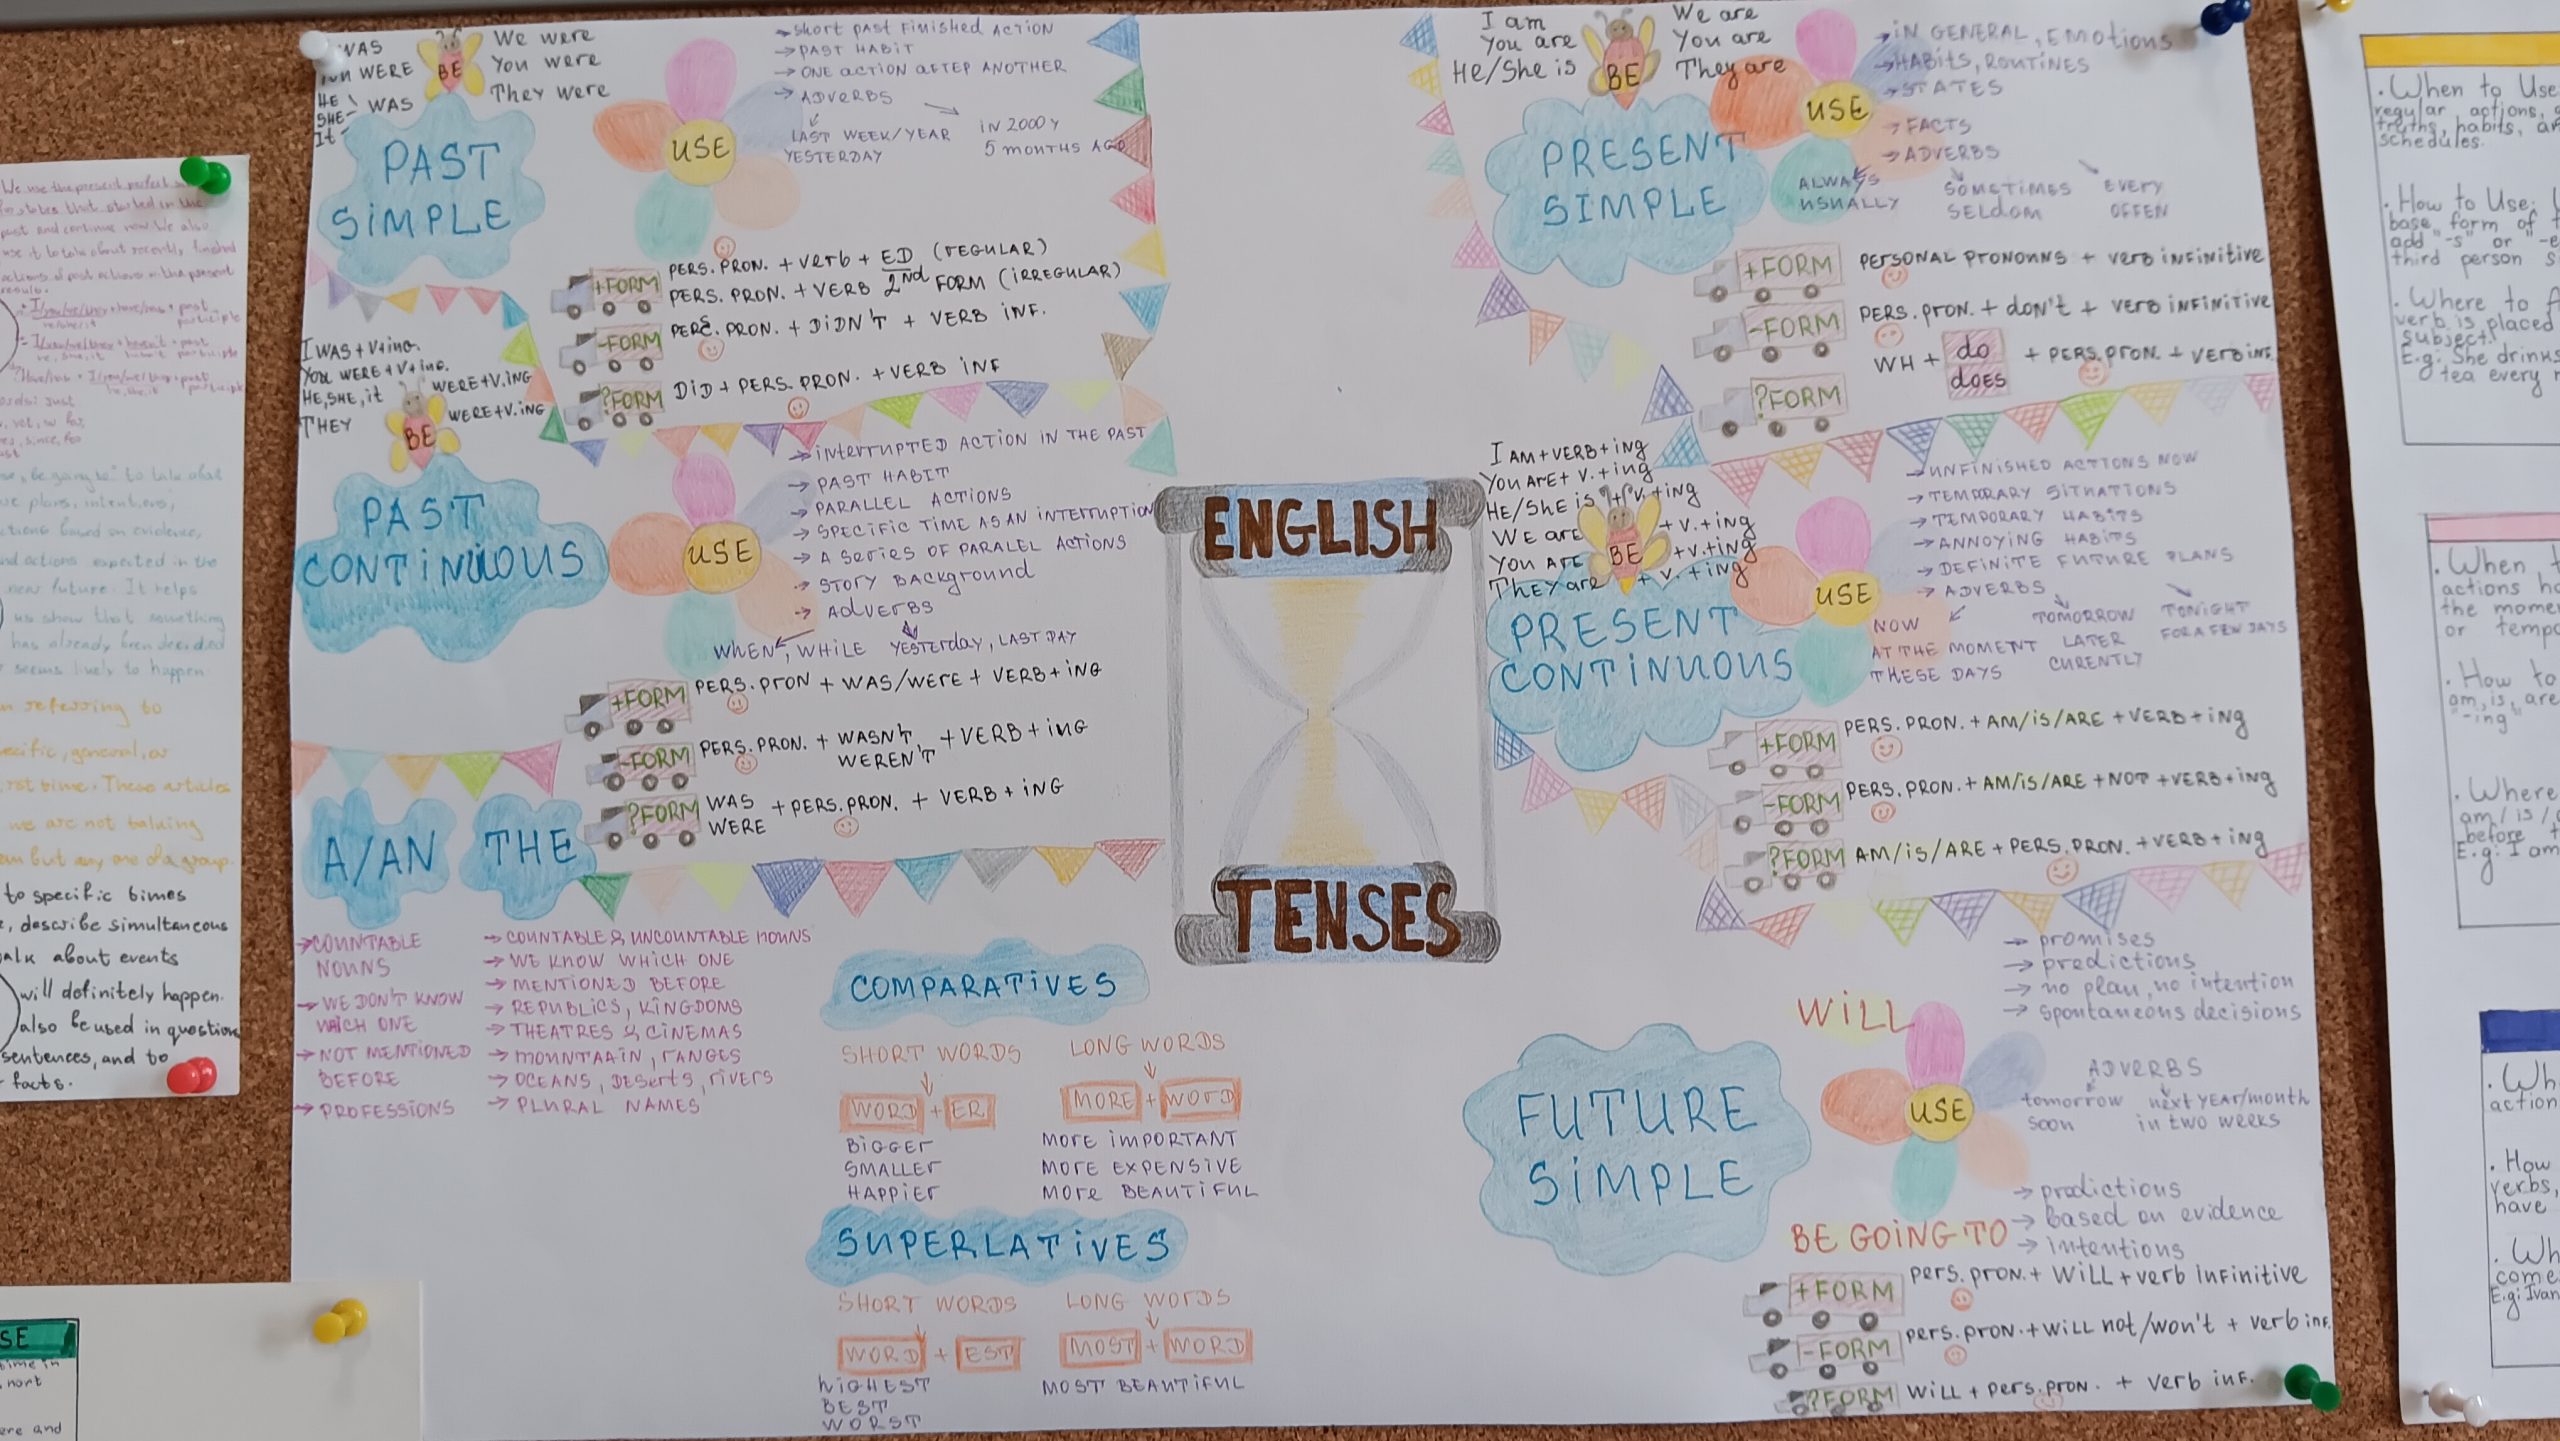 We use the present perfect
past and continue now. We also
use it to talk about recently finished
actions of past actions in the present
be going to" to talk about
plans, intentions,
based on evidence,
and actions expected in the
near future. It helps
us show that something
has already been decided
seems likely to happen.
referring to
general, or
time. These articles
we are not talking
but any one of a group.
to specific times
describe simultaneous
talk about events
will definitely happen.
also be used in question
sentences, and to
facts.
SE
time in
ere and
WAS
WERE
HE
SHE
It
WAS
BE
We were
You were
They were
PAST
SIMPLE
USE
→ short past finished action
→ PAST HABIT
→ ONE ACTION AFTER ANOTHER
→ ADVERBS
LAST WEEK/YEAR
YESTERDAY
IN 2000 Y
5 MONTHS AGO
+FORM
PERS. PRON. + verb + ED (REGULAR)
PERS. PRON. + VERB 2nd FORM (IRREGULAR)
-FORM
PERS. PRON. + DIDN'T + VERB INF.
?FORM
DID + PERS. PRON. + VERB INF
I WAS + V+ing.
You WERE + V+ing.
HE, SHE, it
THEY
WERE+V.ING
WERE+V.ING
BE
PAST
CONTINUOUS
USE
→ INTERRUPTED ACTION IN THE PAST
→ PAST HABIT
→ PARALLEL ACTIONS
→ SPECIFIC TIME AS AN INTERRUPTION
→ A SERIES OF PARALEL ACTIONS
→ STORY BACKGROUND
→ ADVERBS
WHEN, WHILE
YESTERDAY, LAST DAY
+FORM
PERS. PRON + WAS/WERE + VERB+ING
-FORM
PERS. PRON. + WASN'T
WEREN'T
+VERB+ING
?FORM
WAS
WERE
+PERS. PRON. + VERB+ING
A/AN
→ COUNTABLE
NOUNS
→ WE DON'T KNOW
WHICH ONE
→ NOT MENTIONED
BEFORE
→ PROFESSIONS
THE
→ COUNTABLE & UNCOUNTABLE NOUNS
→ WE KNOW WHICH ONE
→ MENTIONED BEFORE
→ REPUBLICS, KINGDOMS
→ THEATRES & CINEMAS
→ MOUNTAAIN, RANGES
→ OCEANS, DESERTS, RIVERS
→ PLURAL NAMES
COMPARATIVES
SHORT WORDS
WORD + ER
BIGGER
SMALLER
HAPPIER
LONG WORDS
MORE + WORD
MORE IMPORTANT
MORE EXPENSIVE
MORE BEAUTIFUL
SUPERLATIVES
SHORT WORDS
WORD + EST
HIGHEST
BEST
WORST
LONG WORDS
MOST + WORD
MOST BEAUTIFUL
ENGLISH
TENSES
I am
You are
He/She is
BE
We are
You are
They are
PRESENT
SIMPLE
USE
→ IN GENERAL, EMOTIONS
→ HABITS, ROUTINES
→ STATES
→ FACTS
→ ADVERBS
ALWAYS
USUALLY
SOMETIMES
SELDOM
EVERY
OFFEN
+FORM
PERSONAL PRONOUNS + verb INFINITIVE
-FORM
PERS. PRON. + don't + VERB INFINITIVE
?FORM
WH + do
does
+ PERS. PRON. + VERB INF.
I AM+VERB+ing
You ARE+ V.+ing
He/She is +V.+ing
We are +V.+ing
You ARE +V.+ing
They are + V.+ing
BE
PRESENT
CONTINUOUS
USE
→ UNFINISHED ACTIONS NOW
→ TEMPORARY SITUATIONS
→ TEMPORARY HABITS
→ ANNOYING HABITS
→ DEFINITE FUTURE PLANS
→ ADVERBS
NOW
AT THE MOMENT
THESE DAYS
TOMORROW
LATER
CURENTLY
TONIGHT
FOR A FEW DAYS
+FORM
PERS. PRON. + AM/IS/ARE +VERB+ing
-FORM
PERS. PRON. + AM/IS/ARE +NOT +VERB+ing
?FORM
AM/IS/ARE + PERS. PRON. +VERB+ing
FUTURE
SIMPLE
WILL
→ promises
→ predictions
→ no plan, no intention
→ spontaneous decisions
USE
ADVERBS
tomorrow
soon
next YEAR/month
in two weeks
BE GOING TO
→ predictions
→ based on evidence
→ intentions
+FORM
pers. pron. + WILL + verb INFINITIVE
-FORM
pers. pron. + will not/won't + verb inf.
?FORM
WILL + pers. pron. + verb inf.
. When to Use
regular actions,
truths, habits,
schedules.
. How to Use:
base form of
add "-s" or
third person
. Where to
verb is placed
subject.
E.g: She drinks
tea every
. When
actions
the
or
. How to
am, is, are
"-ing"
. Where
am / is /
before
E.g: I am
action
. How
verbs,
have
come
E.g: Ivan